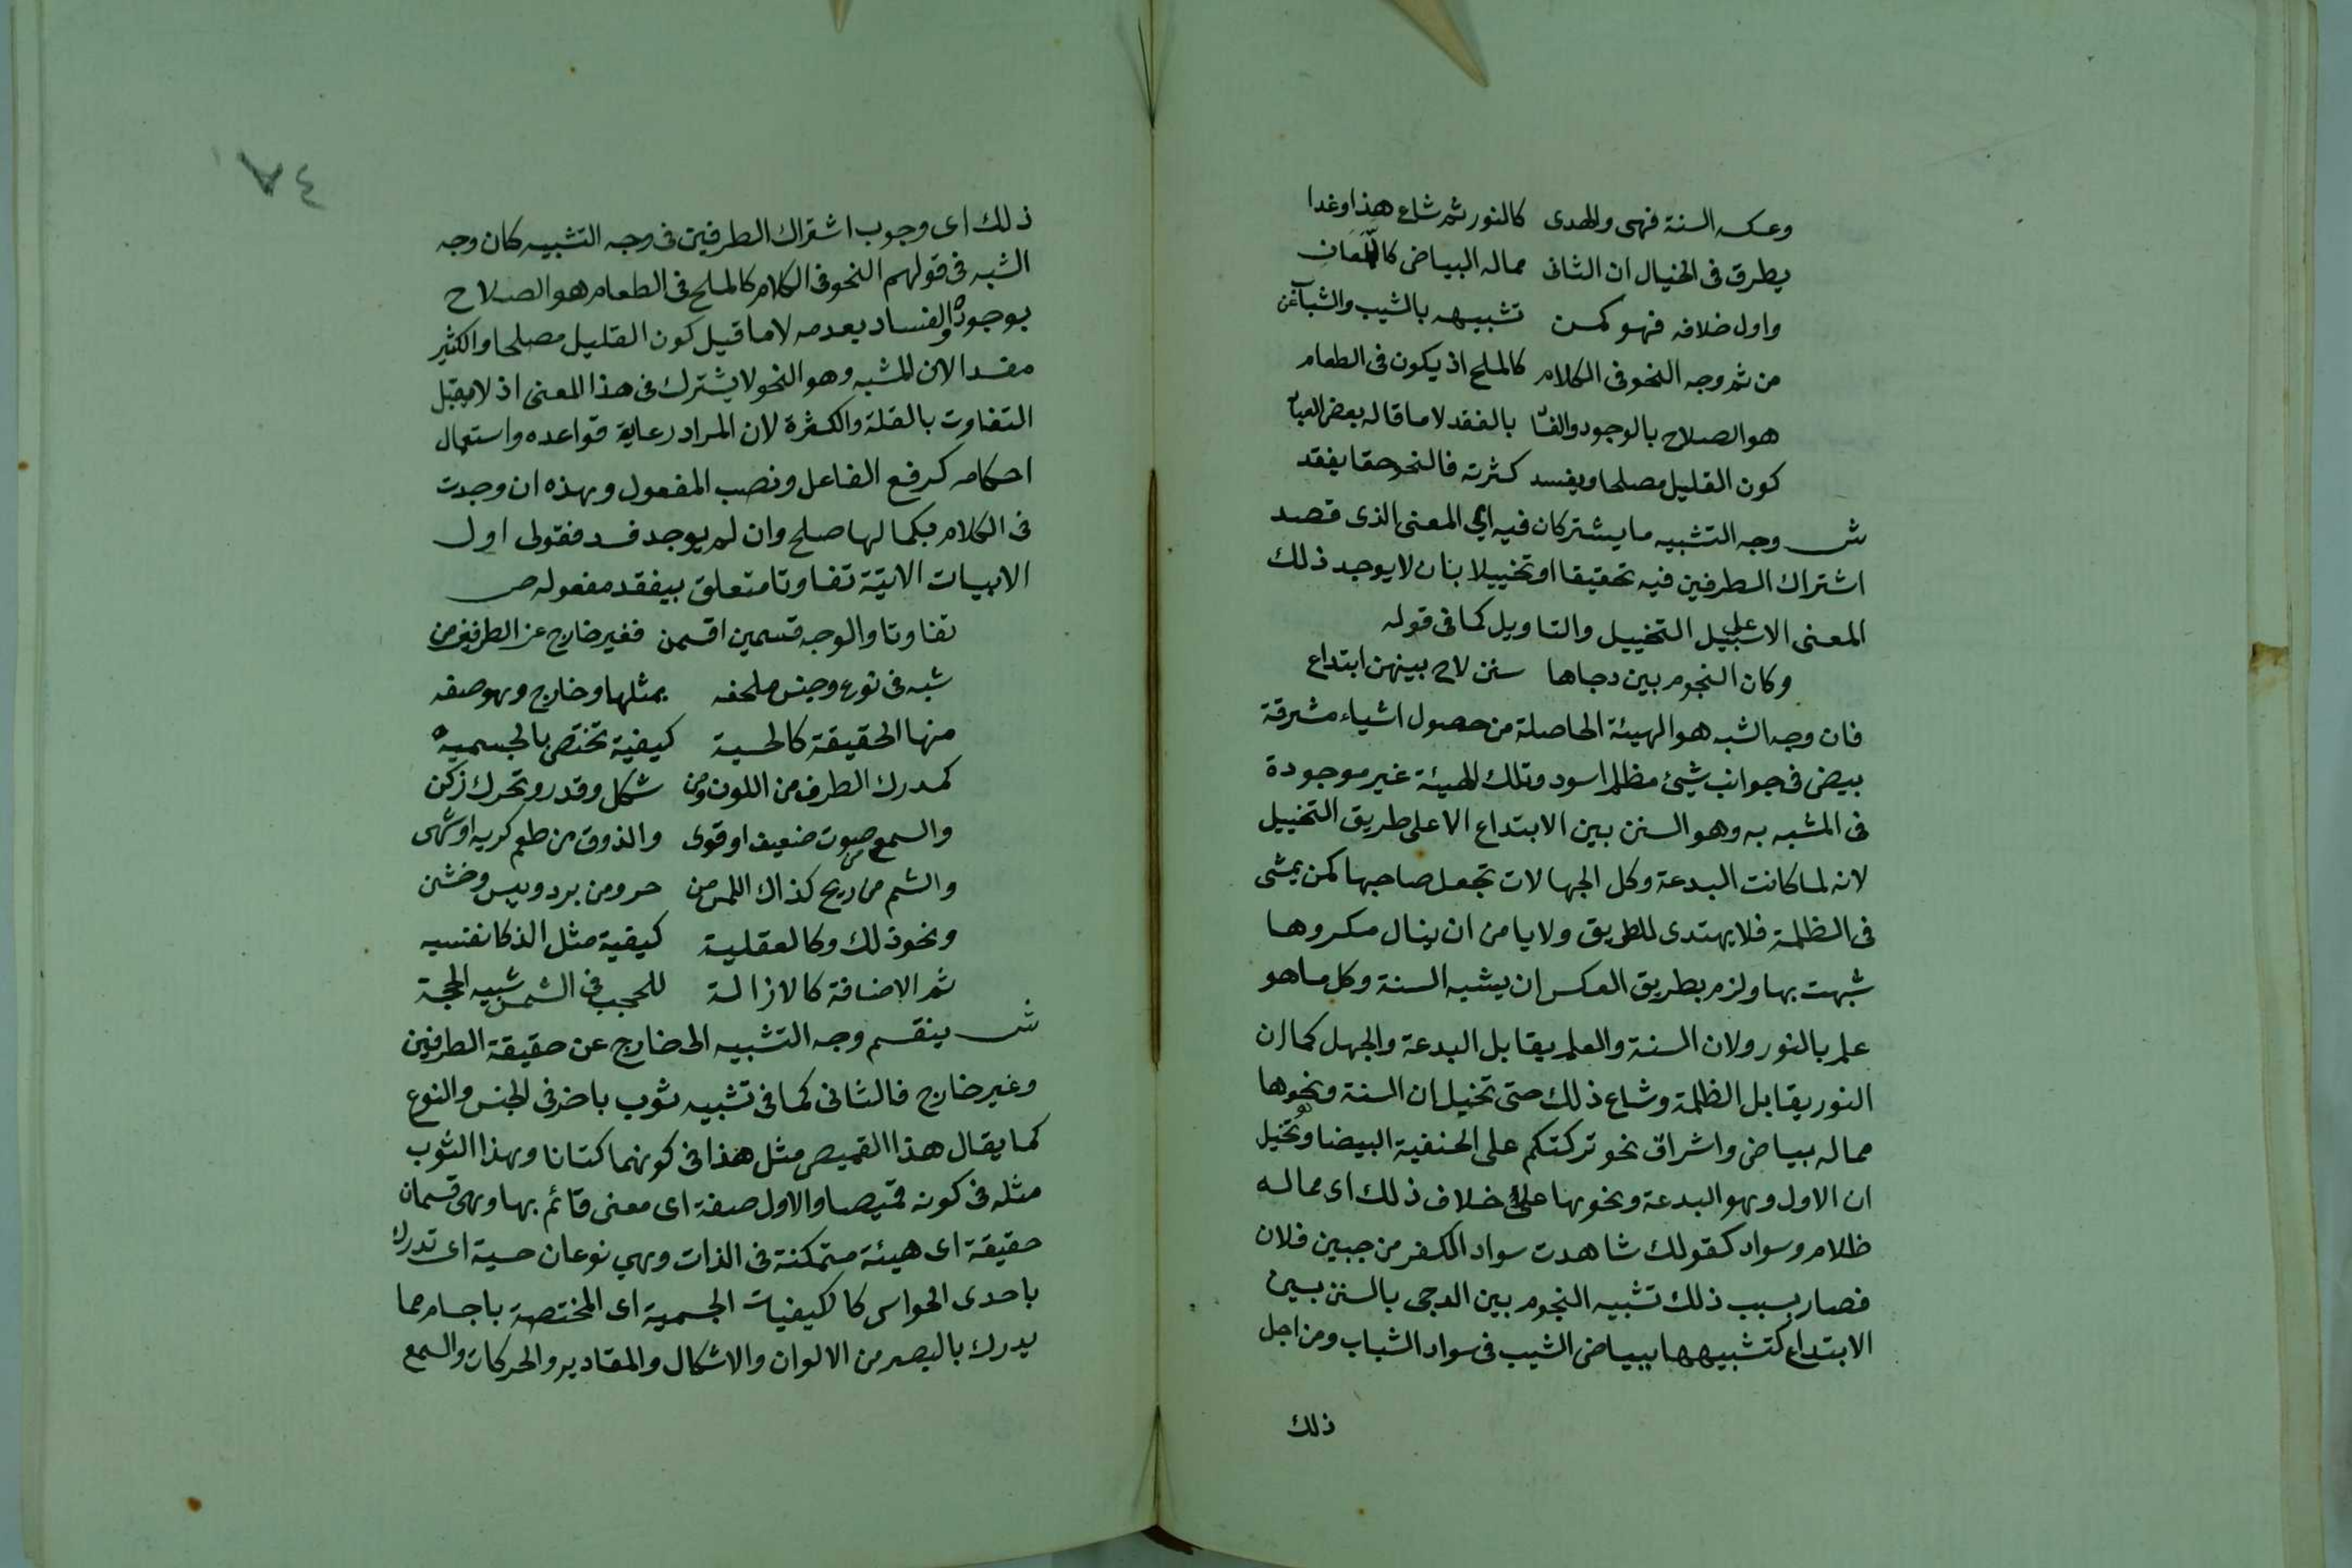 وعكسه السنة فهى والهدى كالنور ثم شاع هذا وغدا
يطرق فى الخيال ان الثانى مماله البياض كاللمعان
واول خلافه فهو كمن تشبيهه بالشيب والشباب عن
من ثم وجه النحو فى الكلام كالملح اذ يكون فى الطعام
هو الصلاح بالوجود والفسا بالفقد لا ما قاله بعض
كون القليل مصلحا ويفسد كثرته فالنحو حقا يفقد
ش وجه التشبيه ما يشتركان فيه اى المعنى الذى قصد
اشتراك الطرفين فيه تحقيقا او تخييلا بان لا يوجد ذلك
المعنى الا على سبيل التخييل والتاويل كما فى قوله
وكان النجوم بين دجاها سنن لاح بينهن ابتداع
فان وجه الشبه هو الهيئة الحاصلة من حصول اشياء مشرقة
بيض فى جوانب شيئ مظلم اسود وتلك الهيئة غير موجودة
فى المشبه به وهو السنن بين الابتداع الا على طريق التخييل
لانه لما كانت البدعة وكل الجهالات تجعل صاحبها كمن يمشى
فى الظلمة فلا يهتدى للطريق ولا يامن ان ينال مكروها
شبهت بها ولزم بطريق العكس ان يشبه السنة وكل ما هو
علم بالنور ولان السنة والعلم يقابل البدعة والجهل كما ان
النور يقابل الظلمة وشاع ذلك حتى تخيل ان السنة ونحوها
مماله بياض واشراق نحو تركتكم على الحنفية البيضا وتخيل
ان الاول وهو البدعة ونحوها على خلاف ذلك اى مماله
ظلام وسواد كقولك شاهدت سواد الكفر من جبين فلان
فصار بسبب ذلك تشبيه النجوم بين الدجى بالسنن بين
الابتداع كتشبيهها ببياض الشيب فى سواد الشباب ومن اجل
ذلك
٨٤
ذلك اى وجوب اشتراك الطرفين فى وجه التشبيه كان وجه
الشبه فى قولهم النحو فى الكلام كالملح فى الطعام هو الصلاح
بوجوده والفساد بعدمه لا ما قيل كون القليل مصلحا والكثير
مفسدا لان المشبه وهو النحو لا يشترك فى هذا المعنى اذ لا يقبل
التفاوت بالقلة والكثرة لان المراد رعاية قواعده واستعمال
احكامه كرفع الفاعل ونصب المفعول وهذه ان وجدت
فى الكلام بكمالها صلح وان لم يوجد فسد فقولى اول
الابيات الاتية تفاوتا متعلق بيفقد مفعوله ص
تفاوتا والوجه قسمين اقسمن فغير خارج عن الطرفين من
شبه فى نوع وجنس ملحفه بمثلها وخارج وهو صفه
منها الحقيقة كالحسية كيفية تختص بالجسمية
كمدرك الطرف من اللون ومن شكل وقدر وتحرك زكن
والسمع من صوت ضعيف او قوى والذوق من طعم كريه او شهى
والشم من ريح كذاك اللمس من حر ومن برد ويبس وخشن
ونحو ذلك وكالعقلية كيفية مثل الذكا نفسيه
ثم الاضافة كالازالة للحجب فى الشمس شبيه الحجة
ش ينقسم وجه التشبيه الى خارج عن حقيقة الطرفين
وغير خارج فالثانى كما فى تشبيه ثوب باخر فى الجنس والنوع
كما يقال هذا القميص مثل هذا فى كونهما كتانا وهذا الثوب
مثله فى كونه قميصا والاول صفة اى معنى قائم بها وهى قسمان
حقيقة اى هيئة متمكنة فى الذات وهي نوعان حسية اى تدرك
باحدى الحواس كالكيفيات الجسمية اى المختصة باجسام مما
يدرك بالبصر من الالوان والاشكال والمقادير والحركات والسمع